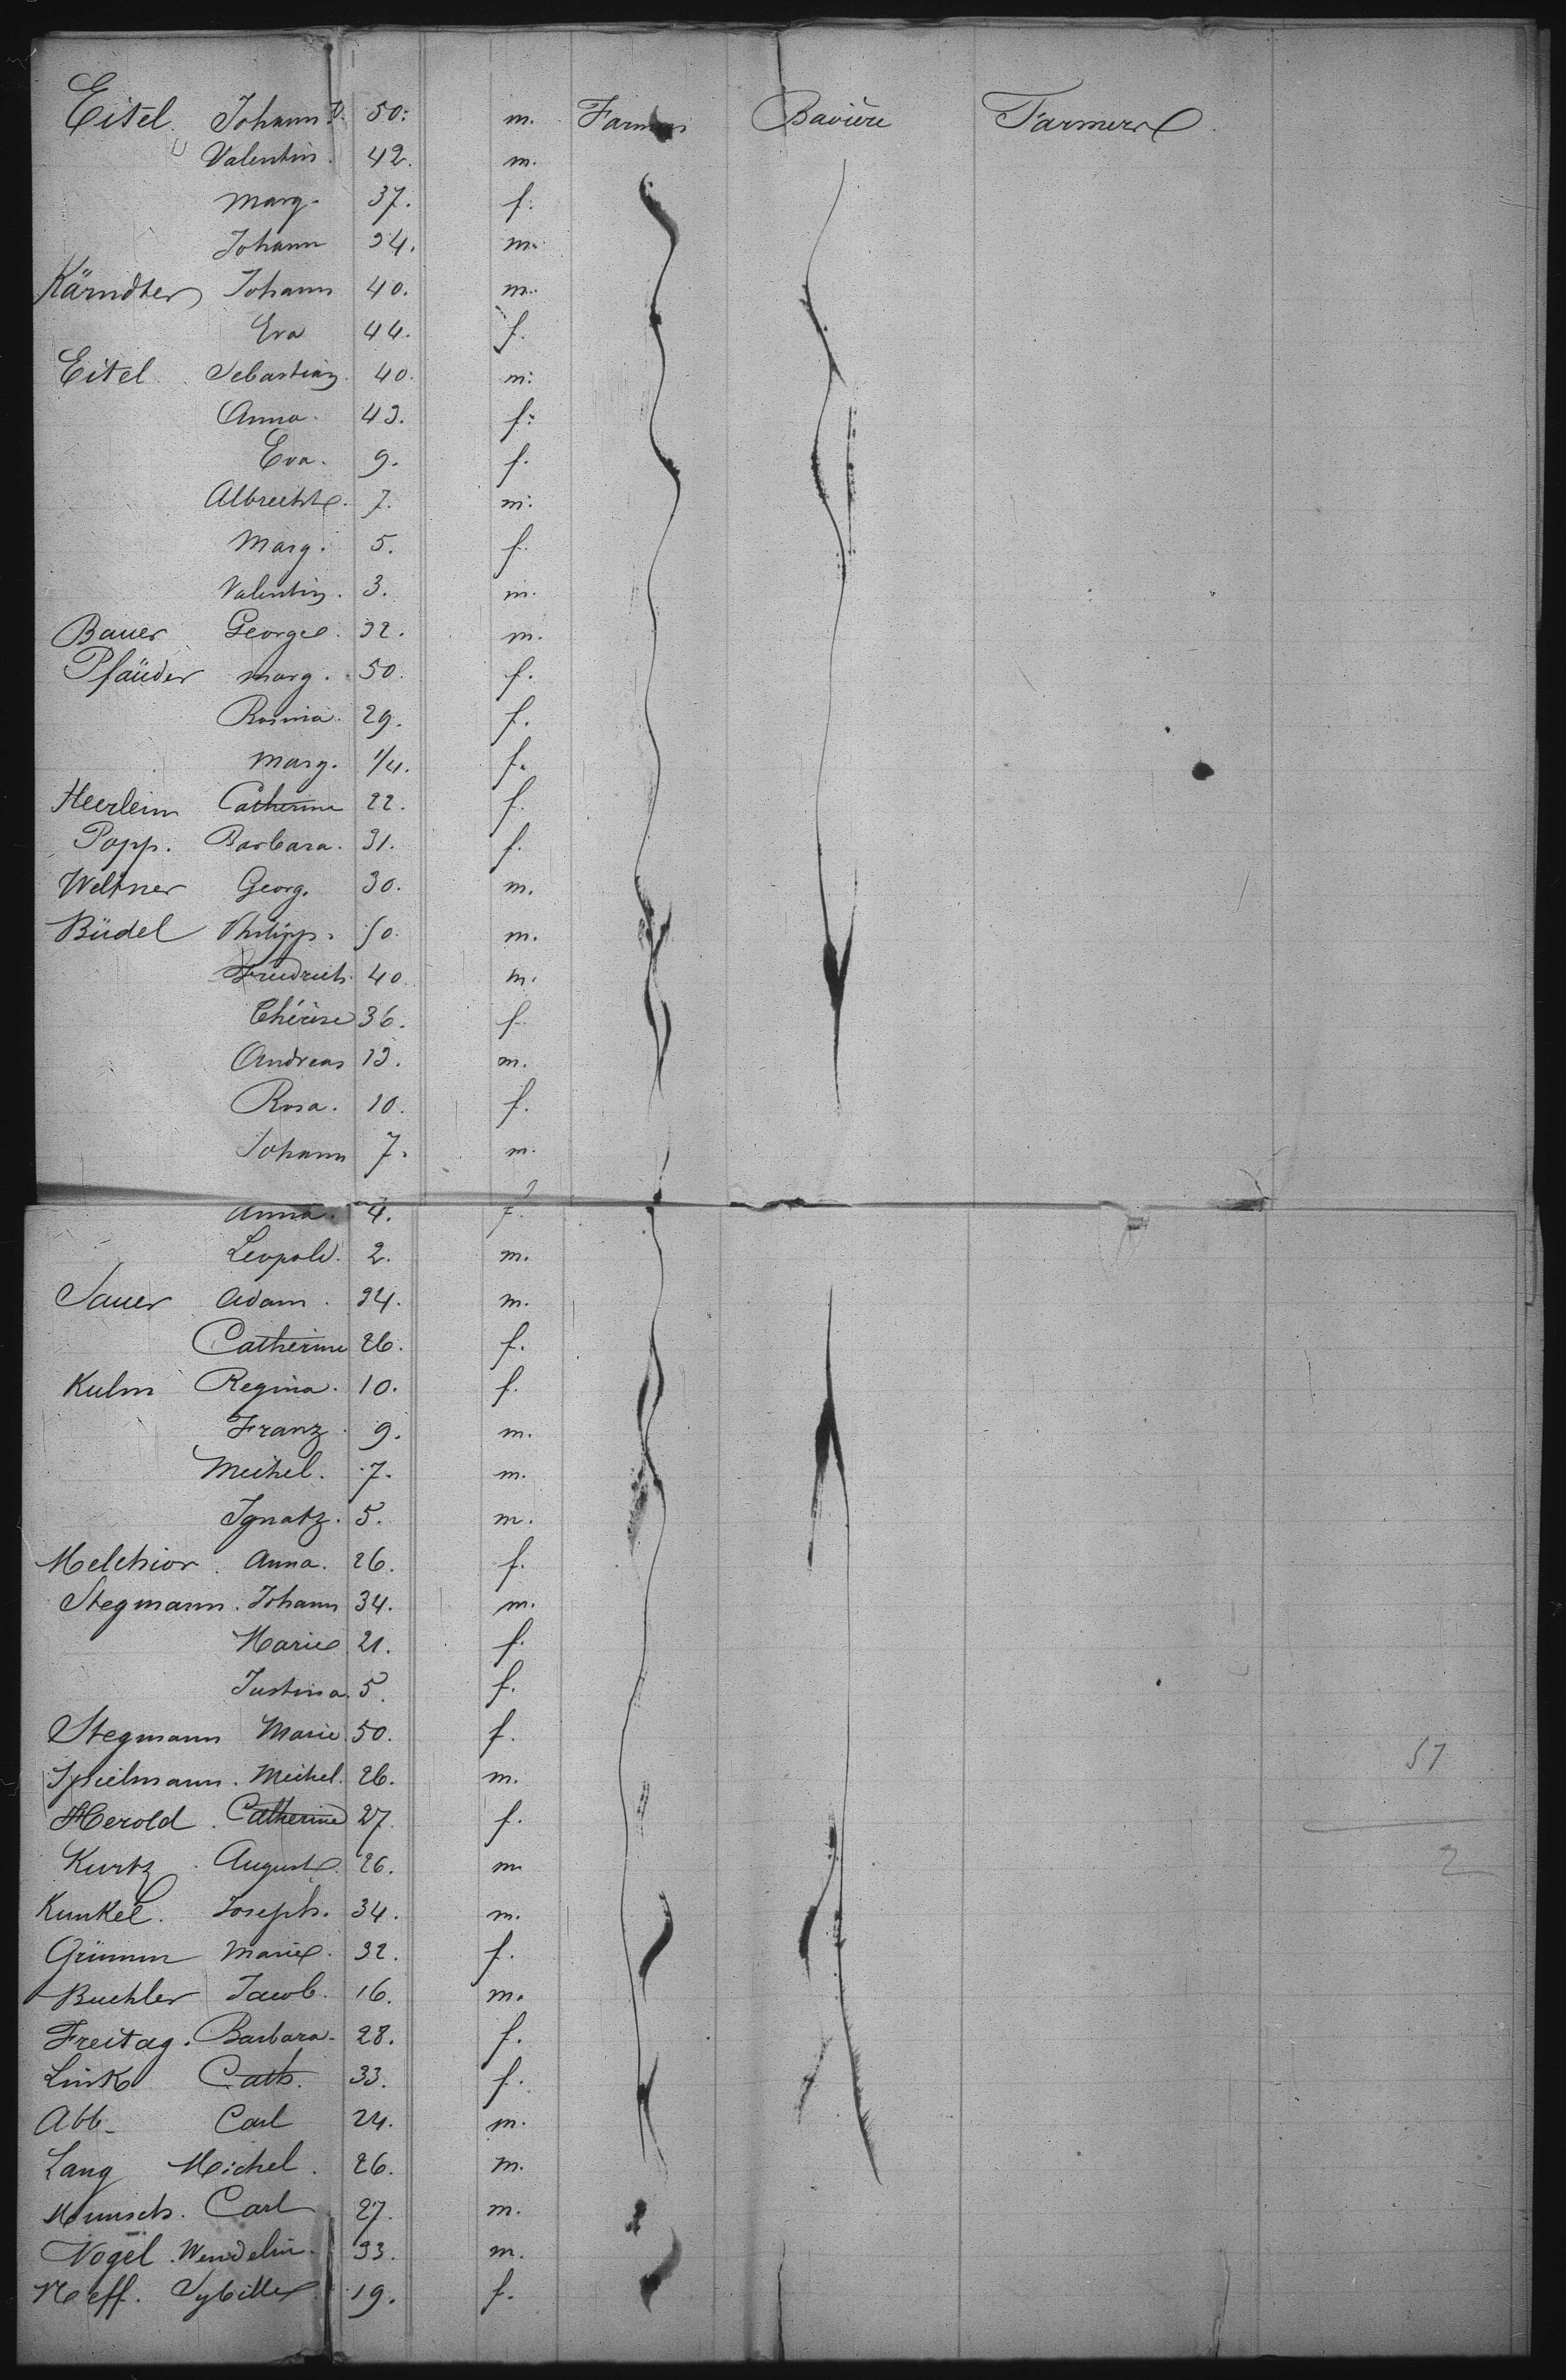 Eitel Johann 50. m. Farmers Bavière Farmers
Valentin. 42. m.
Marg. 37. f.
Johann 34. m.
Kärndter Johann 40. m.
Eva 44. f.
Eitel Sebastian 40. m.
Anna. 43. f.
Eva. 9. f.
Albrecht. 7. m.
Marg. 5. f.
Valentin. 3. m.
Bauer George. 32. m.
Pfaüder Marg. 50. f.
Rosina. 29. f.
Marg. 1/4. f.
Heerlein Catherine 22. f.
Popp. Barbara. 31. f.
Weltner Georg. 30. m.
Büdel Philipp. 50. m.
Friedrich. 40. m.
Thérèse 36. f.
Andreas 13. m.
Rosa. 10. f.
Johann 7. m.
Anna. 4. f.
Leopold. 2. m.
Sauer Adam. 34. m.
Catherine 26. f.
Kulm Regina. 10. f.
Franz. 9. m.
Michel. 7. m.
Ignatz. 5. m.
Melchior. Anna. 26. f.
Stegmann. Johann 34. m.
Marie 21. f.
Justina. 5. f.
Stegmann Marie. 50. f.
Spielmann. Michel. 26. m.
57
Herold. Catherine 27. f.
Kurtz. August. 26. m
2
Kunkel. Joseph. 34. m.
Grümm Marie. 32. f.
Buchler Jacob. 16. m.
Freitag. Barbara. 28. f.
Link Cath. 33. f.
Abb. Carl 24. m.
Lang Michel. 26. m.
Munsch. Carl 27. m.
Vogel. Wendelin. 33. m.
Neff. Sybille. 19. f.